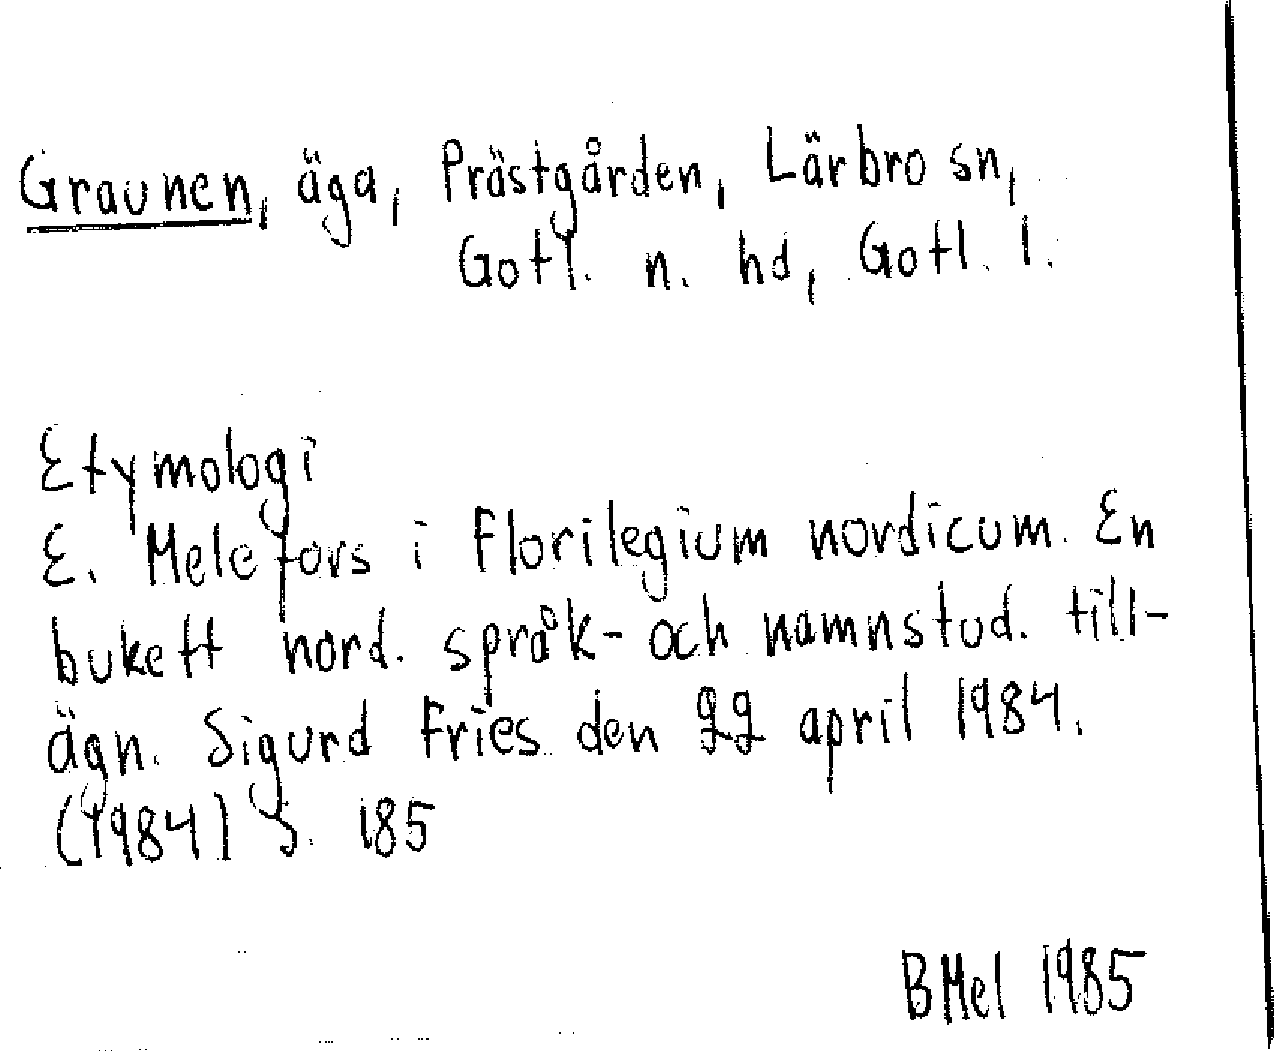 Graunen, äga, Prästgården, Lärbro sn,
Gotl. n. hd, Gotl. l.
Etymologi
E. Melefors i Florilegium nordicum. En
bukett nord. språk- och namnstud. till-
ägn. Sigurd Fries den 22 april 1984.
(1984) S. 185
BMel 1985